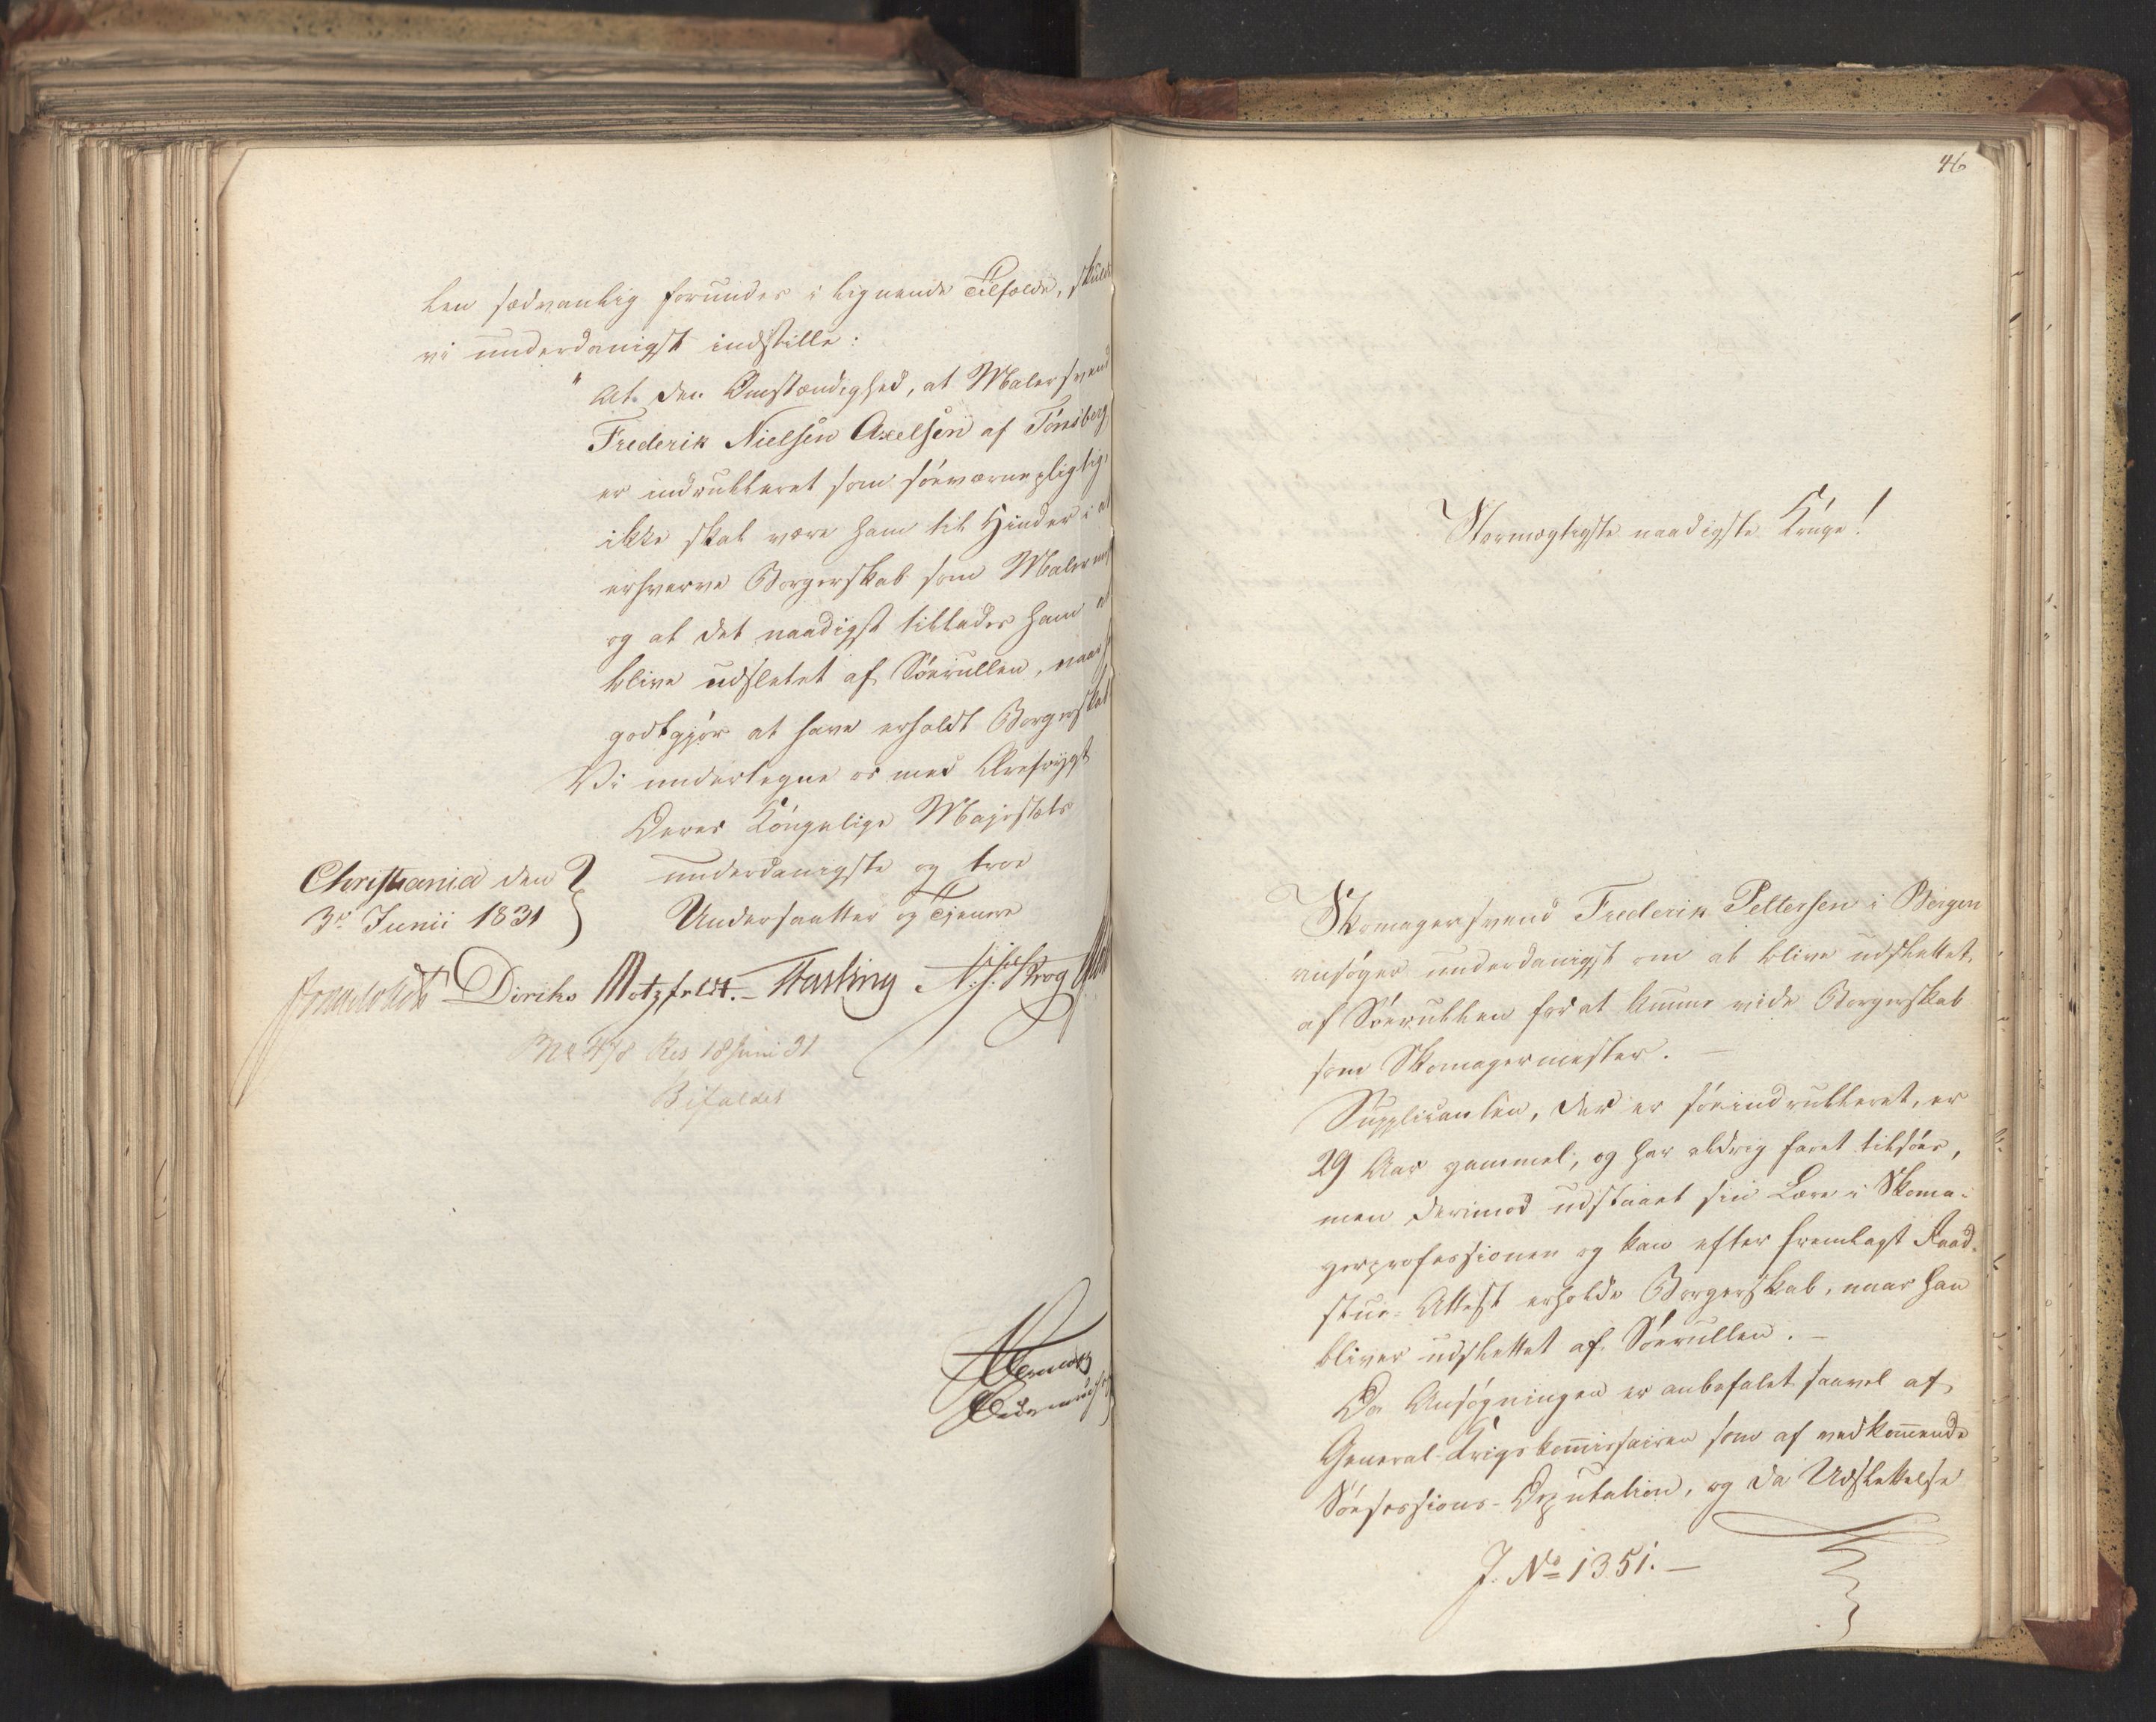 len sædvanlig forundes i lignende Tilfælde, skulde
vi underdanigst indstille:
"At den Omstændighed, at Malersvend
Frederik Nielsen Axelsen af Tönsberg
er indrulleret som söeværnepligtig,
ikke skal være ham til Hinder i at
erhverve Borgerskab som Malermes
og at det naadigst tillades ham at
blive udslettet af Söerullen, naar h
godtgjør at have erholdt Borgerskab
Vi undertegne os med Ærefrygt
Deres Kongelige Majestæts
underdanigste og troe
Undersaatter og Tjenere
Christiania den
3die Junii 1831
Diriks Motzfeldt. Fasting
No 478 Res 18 Juni 31
Bifaldes
46
Stormægtigste naadigste Konge!
Skomagersvend Frederik Pettersen i Bergen
ansöger underdanigst om at blive udslettet
af Söerullen for at kunne vinde Borgerskab
som Skomagermester. —
Supplicanten, der er söeindrulleret, er
29 Aar gammel, og har aldrig faret tilsöes,
men derimod udstaaet sin Lære i Skoma-
gerprofessionen og kan efter fremlagt Raad-
stue-Attest erholde Borgerskab, naar han
bliver udslettet af Söerullen. —
Da Ansögningen er anbefalet saavel af
General-Krigskommissairen som af vedkommende
Söesessions-Deputation, og da Udslettelse
J. No 1351. —